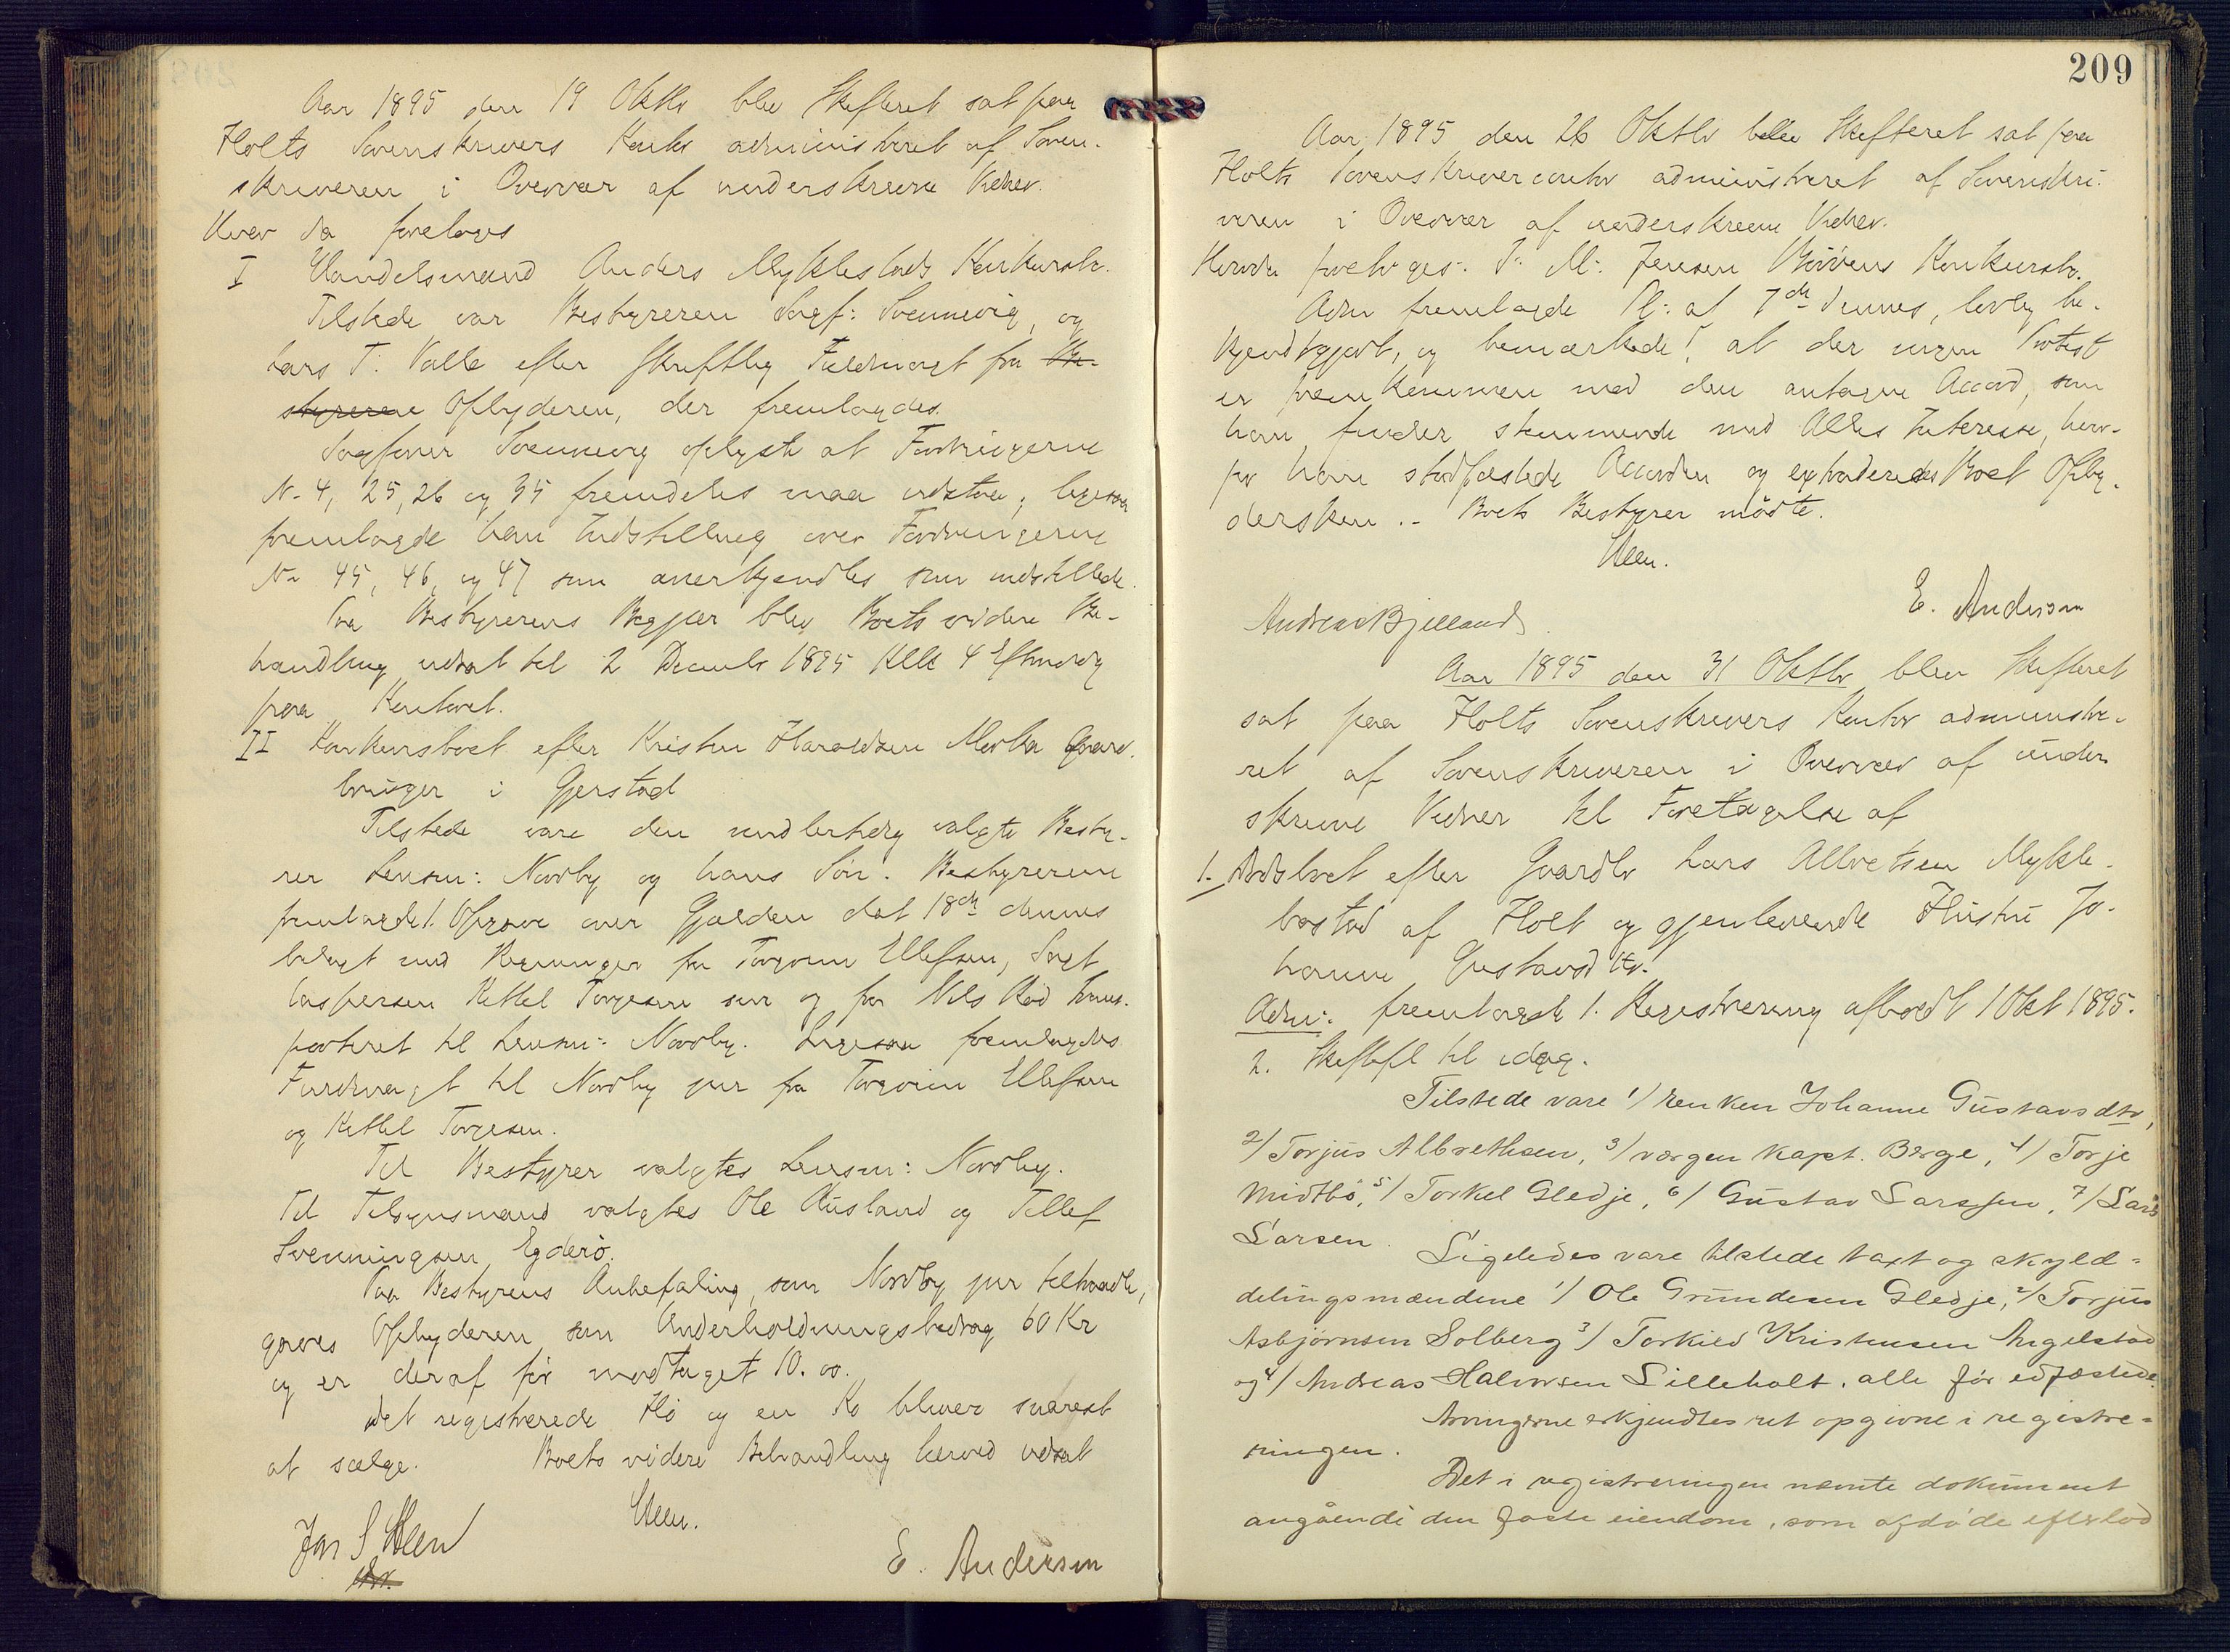 Aar 1895 den 19 Oktbr blev Skifteret sat paa
Holts Sorenskrivers Kontor administreret af Soren-
skriveren i Overvær af underskrevne Vidner.
Hvor da foretoges
I Handelsmand Anders Myklestads Konkursbo.
Tilstede var Bestyreren Sagf: Svennevig, og
Lars T. Valle efter skriftlig Fuldmagt fra Be-
styrerene Opbyderen, der fremlagdes.
Sagfører Svennevig oplyste at Fordringerne
N- 4, 25, 26 og 35 fremdeles maa udstaa; ligesaa
fremlagde han Indstilling over Fordringerne
Nr 45, 46, og 47 som anerkjendtes som indstillede.
Paa Bestyrerens Begjær blev Boets videre Be-
handling udsat til 2 Decembr 1895 Klk 4 Eftermdg
paa Kontoret.
II Konkursboet efter Kristen Haraldsen Mostad Gaard-
bruger i Gjerstad
Tilstede vare den midlertidig valgte Besty-
rer Lensm: Nordby og hans Søn. Bestyreren
fremlagde 1. Opgave over Gjælden dat 18de dennes
belagt med Regninger fra Torgrim Ellefsen, Sagf
Caspersen Kittel Torgesen som og fra Nils Rød trans-
porteret til Lensm: Nordby. Ligesaa fremlagdes
Fuldmagt til Nordby jun fra Torgrim Ellefsen
og Kittel Torgesen.
Til Bestyrer valgtes Lensm: Nordby.
Til Tilsynsmænd valgtes Ole Ausland og Tellef
Svenningsen Egderø.
Paa Bestyrens Anbefaling, som Nordby jun tiltraadte,
gaves Opbyderen som Underholdningsbidrag 60 Kr
og er deraf før modtaget 10.00.
Det registrerede Hø og en Ko bliver snarest
at sælge. Boets videre Behandling herved udsat
Steen.
Jon S Steen
E. Andersen
209
Aar 1895 den 26 Oktbr blev Skifteret sat paa
Holts Sorenskrivercontor administreret af Sorenskri-
veren i Overvær af underskrevne Vidner.
Hvorda foretoges. J. M. Jensen Bøvens Konkursbo.
Adm fremlagde Pl: af 7de dennes, lovlig be-
kjendtgjort, og bemærkede! at der ingen Protest
er fremkommen mod den antagne Accord, som
han finder stemmende med Alles Interesse, hvor-
for han stadfæstede Accorden og extraderedes Boet Opby-
dersken.- Boets Bestyrer mødte.
Steen.
E. Andersen
Andreas Bjelland
Aar 1895 den 31 Oktbr blev Skifteret
sat paa Holts Sorenskrivers Kontor administre-
ret af Sorenskriveren i Overvær af under-
skrevne Vidner til Foretagelse af
1. Dødsboet efter Gaardbr Lars Albretsen Mykle-
bostad af Holt og gjenlevende Hustru Jo-
hanne Gustavsdtr.
Adm: fremlagde 1. Registrering afholdt 1 Okt 1895.
2. Skiftefl til idag.
Tilstede vare 1/ enken Johanne Gustavsdtr,
2/ Torjus Albrethsen, 3/ værgen kapt. Berge, 4/ Torje
Midtbø, 5/ Torkel Gledje, 6/ Gustav Larssen, 7/ Lars
Larsen.
Ligeledes vare tilstede taxt og skyld-
delingsmændene 1/ Ole Grundesen Gledje, 2/ Torjus
Asbjørnsen Solberg 3/ Torkild Kristensen Angelstad
og 4/ Andreas Halvorsen Lilleholt. alle før edfæstede.
Arvingerne erkjendtes ret opgivne i registre-
ringen.
Det i registreringen nævnte dokument
angående den faste eiendom, som afdøde efterlod